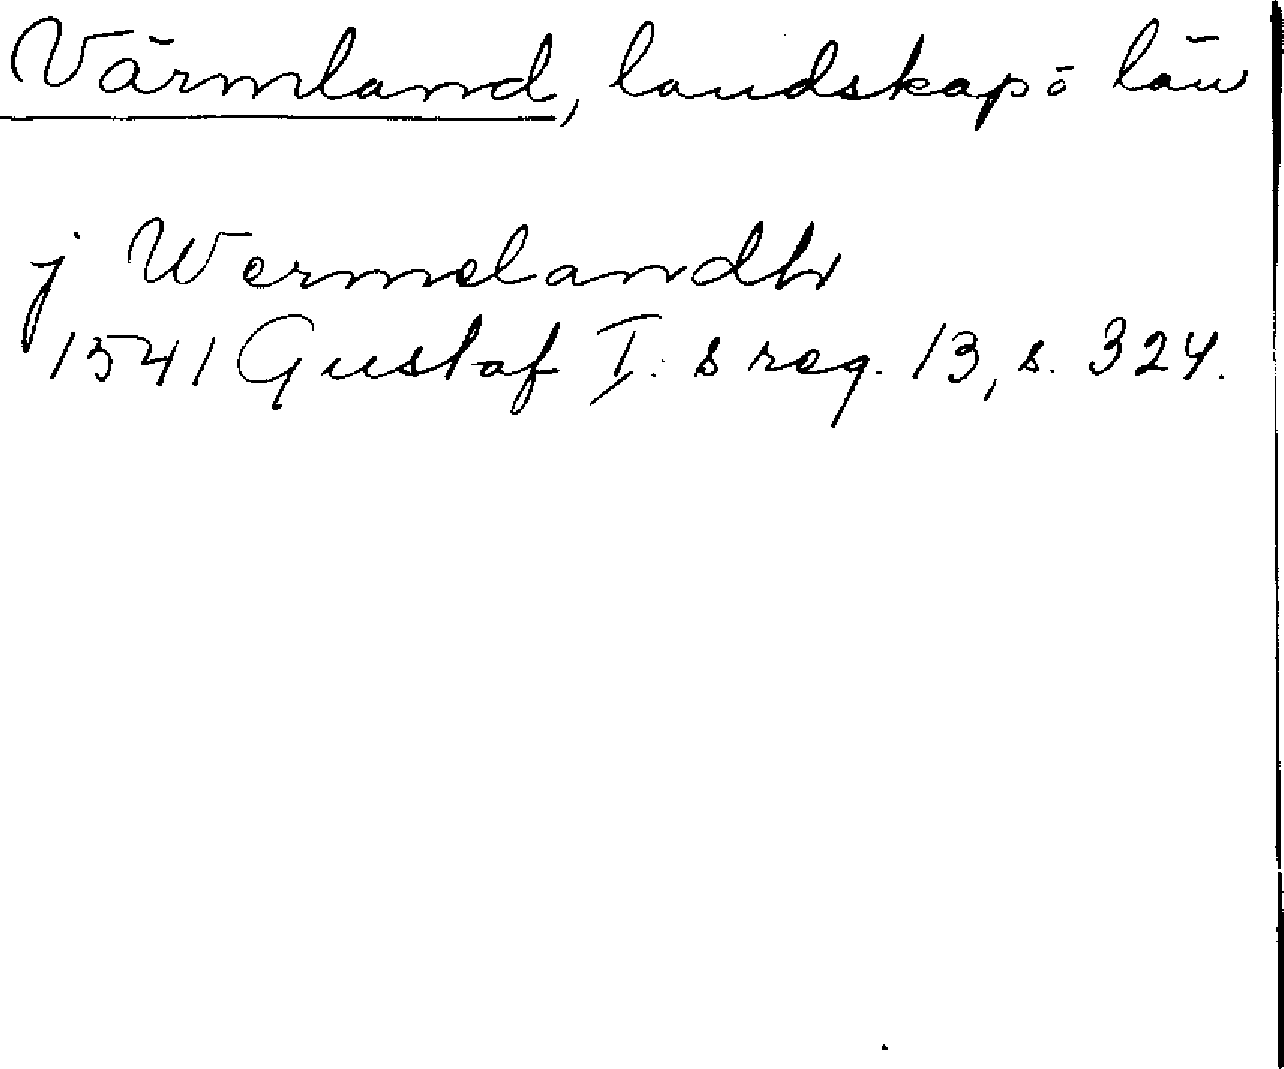 Värmland, landskap ō län
j Wermelandh
1541 Gustaf I:s reg. 13, s. 324.